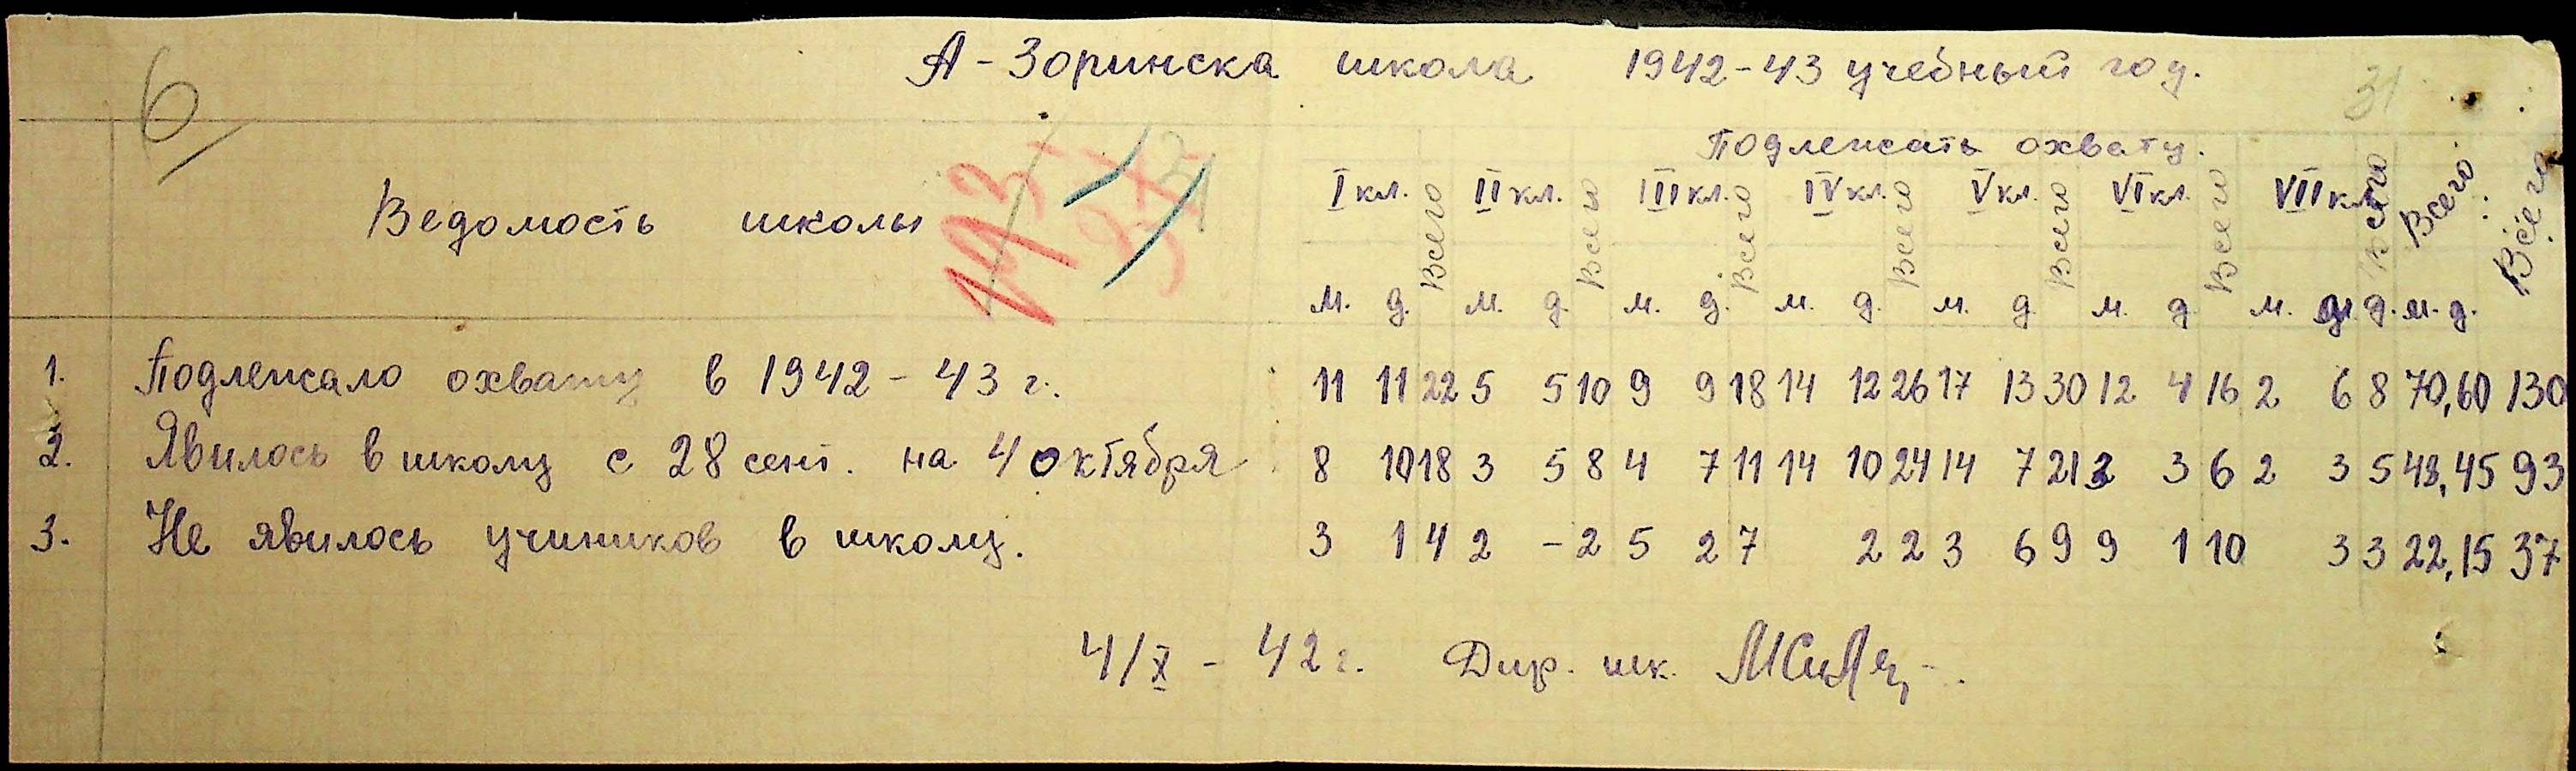 А-Зоринска школа 1942-43 учебный год.
6
31
Подлежать охвату.
Ведомость школы
I кл. Всего II кл. Всего III кл. Всего IV кл. Всего V кл. Всего VI кл. Всего VII кл. Всего Всего Всего
м. д. м. д. м. д. м. д. м. д. м. д. м. д. м. д.
1. Подлежало охвату в 1942-43 г. 11 11 22 5 5 10 9 9 18 14 12 26 17 13 30 12 4 16 2 6 8 70,60 130
2. Явилось в школу с 28 сент. на 4 октября 8 10 18 3 5 8 4 7 11 14 10 24 14 7 21 3 3 6 2 3 5 48,45 93
3. Не явилось учиников в школу. 3 1 4 2 - 2 5 2 7 2 2 3 6 9 9 1 10 3 3 22,15 37
4/X - 42 г. Дир. шк.